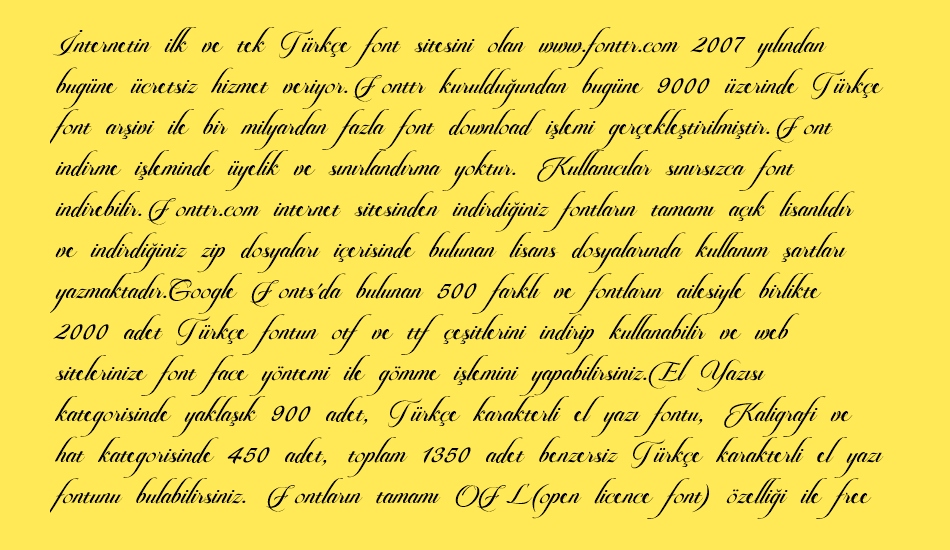 İnternetin ilk ve tek Türkçe font sitesini olan www.fonttr.com 2007 yılından
bugüne ücretsiz hizmet veriyor. Fonttr kurulduğundan bugüne 9000 üzerinde Türkçe
font arşivi ile bir milyardan fazla font download işlemi gerçekleştirilmiştir. Font
indirme işleminde üyelik ve sınırlandırma yoktur. Kullanıcılar sınırsızca font
indirebilir. Fonttr.com internet sitesinden indirdiğiniz fontların tamamı açık lisanlıdır
ve indirdiğiniz zip dosyaları içerisinde bulunan lisans dosyalarında kullanım şartları
yazmaktadır.Google Fonts'da bulunan 500 farklı ve fontların ailesiyle birlikte
2000 adet Türkçe fontun otf ve ttf çeşitlerini indirip kullanabilir ve web
sitelerinize font face yöntemi ile gömme işlemini yapabilirsiniz.El Yazısı
kategorisinde yaklaşık 900 adet, Türkçe karakterli el yazı fontu, Kaligrafi ve
hat kategorisinde 450 adet, toplam 1350 adet benzersiz Türkçe karakterli el yazı
fontunu bulabilirsiniz. Fontların tamamı OFL(open licence font) özelliği ile free